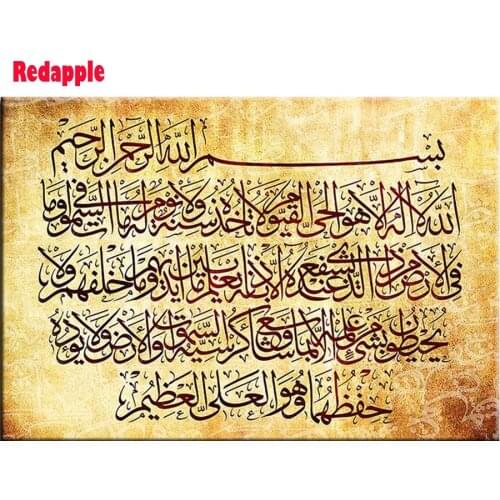 Redapple
بسم الله الرحمن الرحيم
الله لا إله إلا هو الحي القيوم لا تأخذه سنة ولا نوم له ما في السموات وما
في الأرض من ذا الذي يشفع عنده إلا بإذنه يعلم ما بين أيديهم وما خلفهم ولا
يحيطون بشيء من علمه إلا بما شاء وسع كرسيه السموات والأرض ولا يؤده
حفظهما وهو العلي العظيم